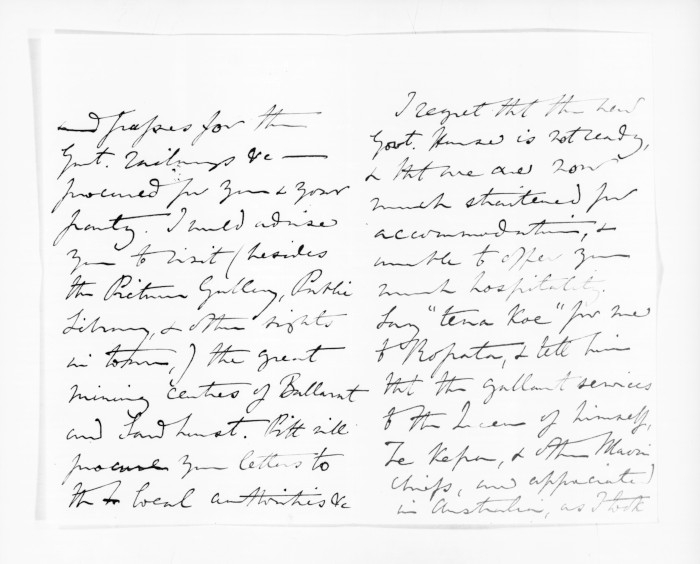 and passes for the
Govt. railways &c —
procured for you & your
party. I would advise
you to visit (besides
the Picture Gallery, Public
Library, & other sights
in town,) the great
mining centres of Ballarat
and Sandhurst. Pitt will
procure you letters to
the local authorities &c
I regret that the new
Govt. House is not ready,
& that we are now
much straitened for
accommodation, &
unable to offer you
much hospitality.
Say "tena koe" for me
to Ropata, & tell him
that the gallant services
to the Queen of himself,
Te Kepa, & other Maori
chiefs, are appreciated
in Australia, as I took